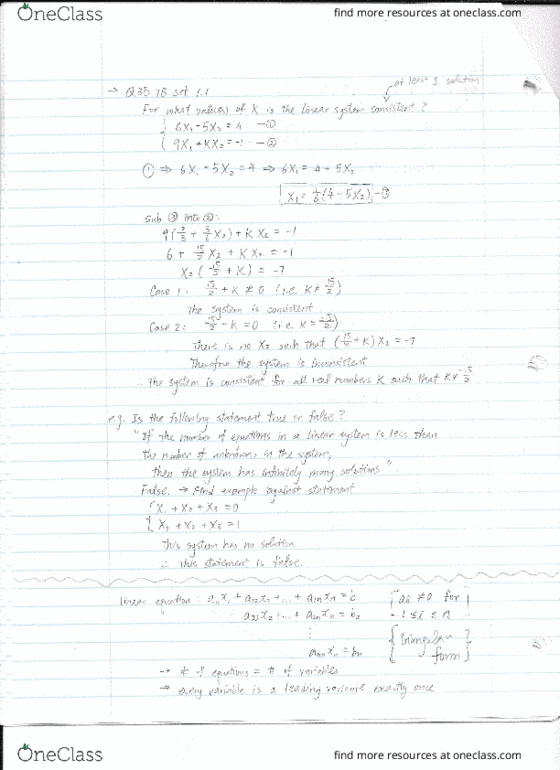 OneClass
find more resources at oneclass.com
→ Q35 TB set 1.1
at least 1 solution
For what value(s) of K is the linear system consistent?
6X₁-5X₂=4 —①
9X₁+KX₂=-1 —②
① ⇒ 6X₁-5X₂=4 ⇒ 6X₁=4+5X₂
X₁=1/6(4-5X₂) —③
Sub ③ into ②:
9(2/3+5/6X₂)+KX₂=-1
6+15/2X₂+KX₂=-1
X₂(15/2+K)=-7
Case 1: 15/2+K≠0 (i.e. K≠15/2)
The system is consistent
Case 2: -15/2-K=0 (i.e. K=-15/2)
There is no X₂ such that (15/2+K)X₂=-7
Therefore the system is inconsistent
∴ The system is consistent for all real numbers K such that K≠-15/2
e.g. Is the following statement true or false?
"If the number of equations in a linear system is less than
the number of unknowns in the system,
then the system has infinitely many solutions"
False. → Find example against statement
X₁+X₂+X₃=0
X₁+X₂+X₃=1
This system has no solution
∴ This statement is false.
linear equation: a₁₁x₁+a₁₂x₂+...+a₁ₙxₙ=c
a₂₂x₂+...+a₂ₙxₙ=b₂
⋮
aₙₙxₙ=bₙ
aᵢᵢ≠0 for
1≤i≤n
{triangular
form}
→ # of equations = # of variables
→ every variable is a leading variable exactly once
OneClass
find more resources at oneclass.com